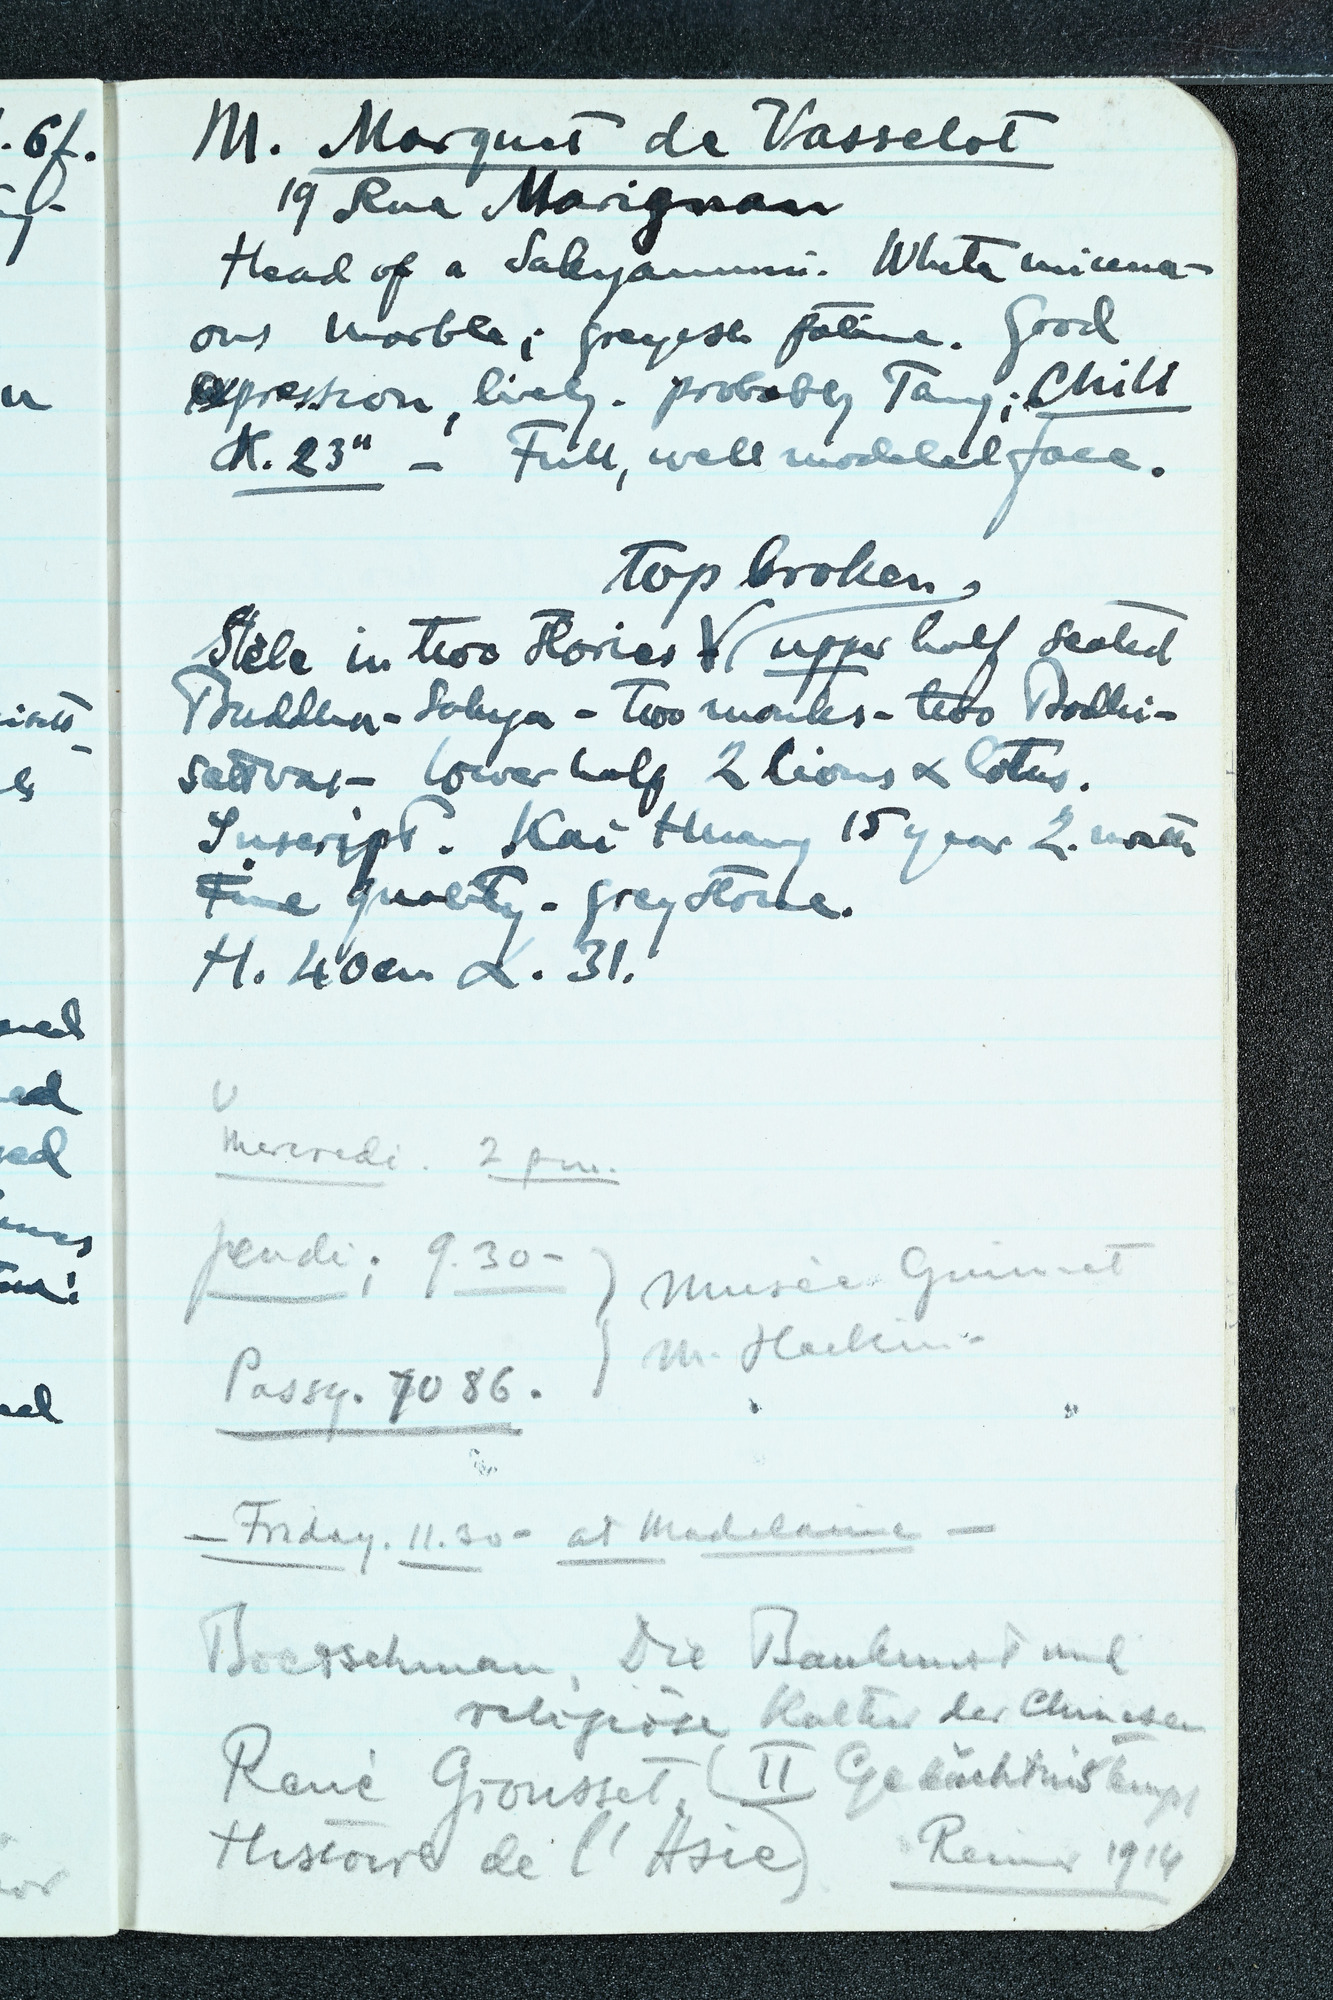 M. Marquet de Vasselot
19 Rue Marignan
Head of a Sakyamuni. White micace-
ous marble; greyish patine. Good
expression, lively. probably Tang; Chili
H. 23" – Full, well modeled face.
top broken,
Stèle in two stories ( upper half seated
Buddha - Sakya - two monks - two Bodhi-
sattvas – lower half 2 lions & lotus.
Inscript. Kai Huang 15 year 2. month
Fine quality - grey stone.
H. 40 cm L. 31.
Mercredi. 2 pm.
jeudi; 9.30 - } Musée Guimet
M. Hackin -
Passy. 70 86.
– Friday. 11.30 - at Madelaine –
Boerschman, Die Baukunst und
religiöse Kultur der Chinesen
René Grousset, ( II Gedächtnistempel
Histoire de l'Asie) Reimer 1914